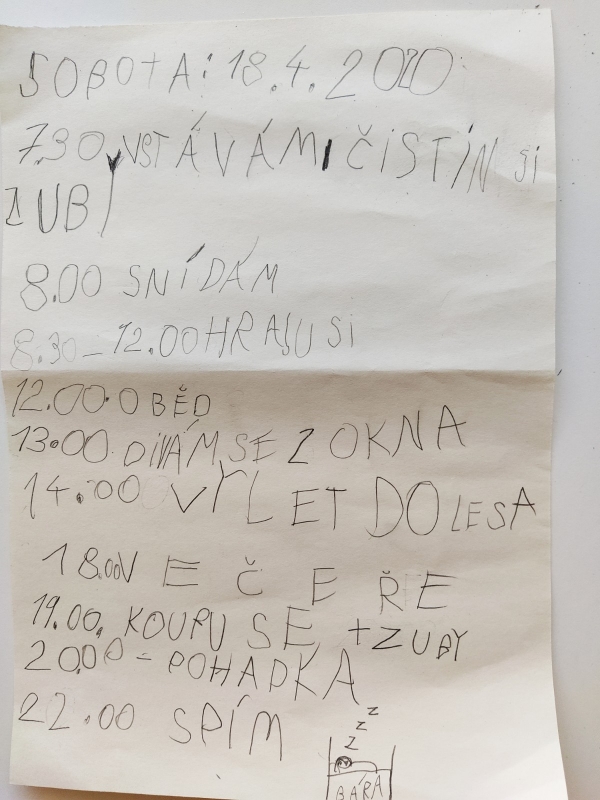 SOBOTA: 18.4.2020
7.30 VSTÁVÁM, ČISTÍN SI
ZUBY
8.00 SNÍDÁM
8.30 - 12.00 HRAJU SI
12.00 OBĚD
13.00. DÍVÁM SE Z OKNA
14.00 VÝLET DO LESA
18.00 VEČEŘE
19.00. KOUPU SE + ZUBY
20.00 - POHADKA
22.00 SPÍM
z
z
z
BÁRA